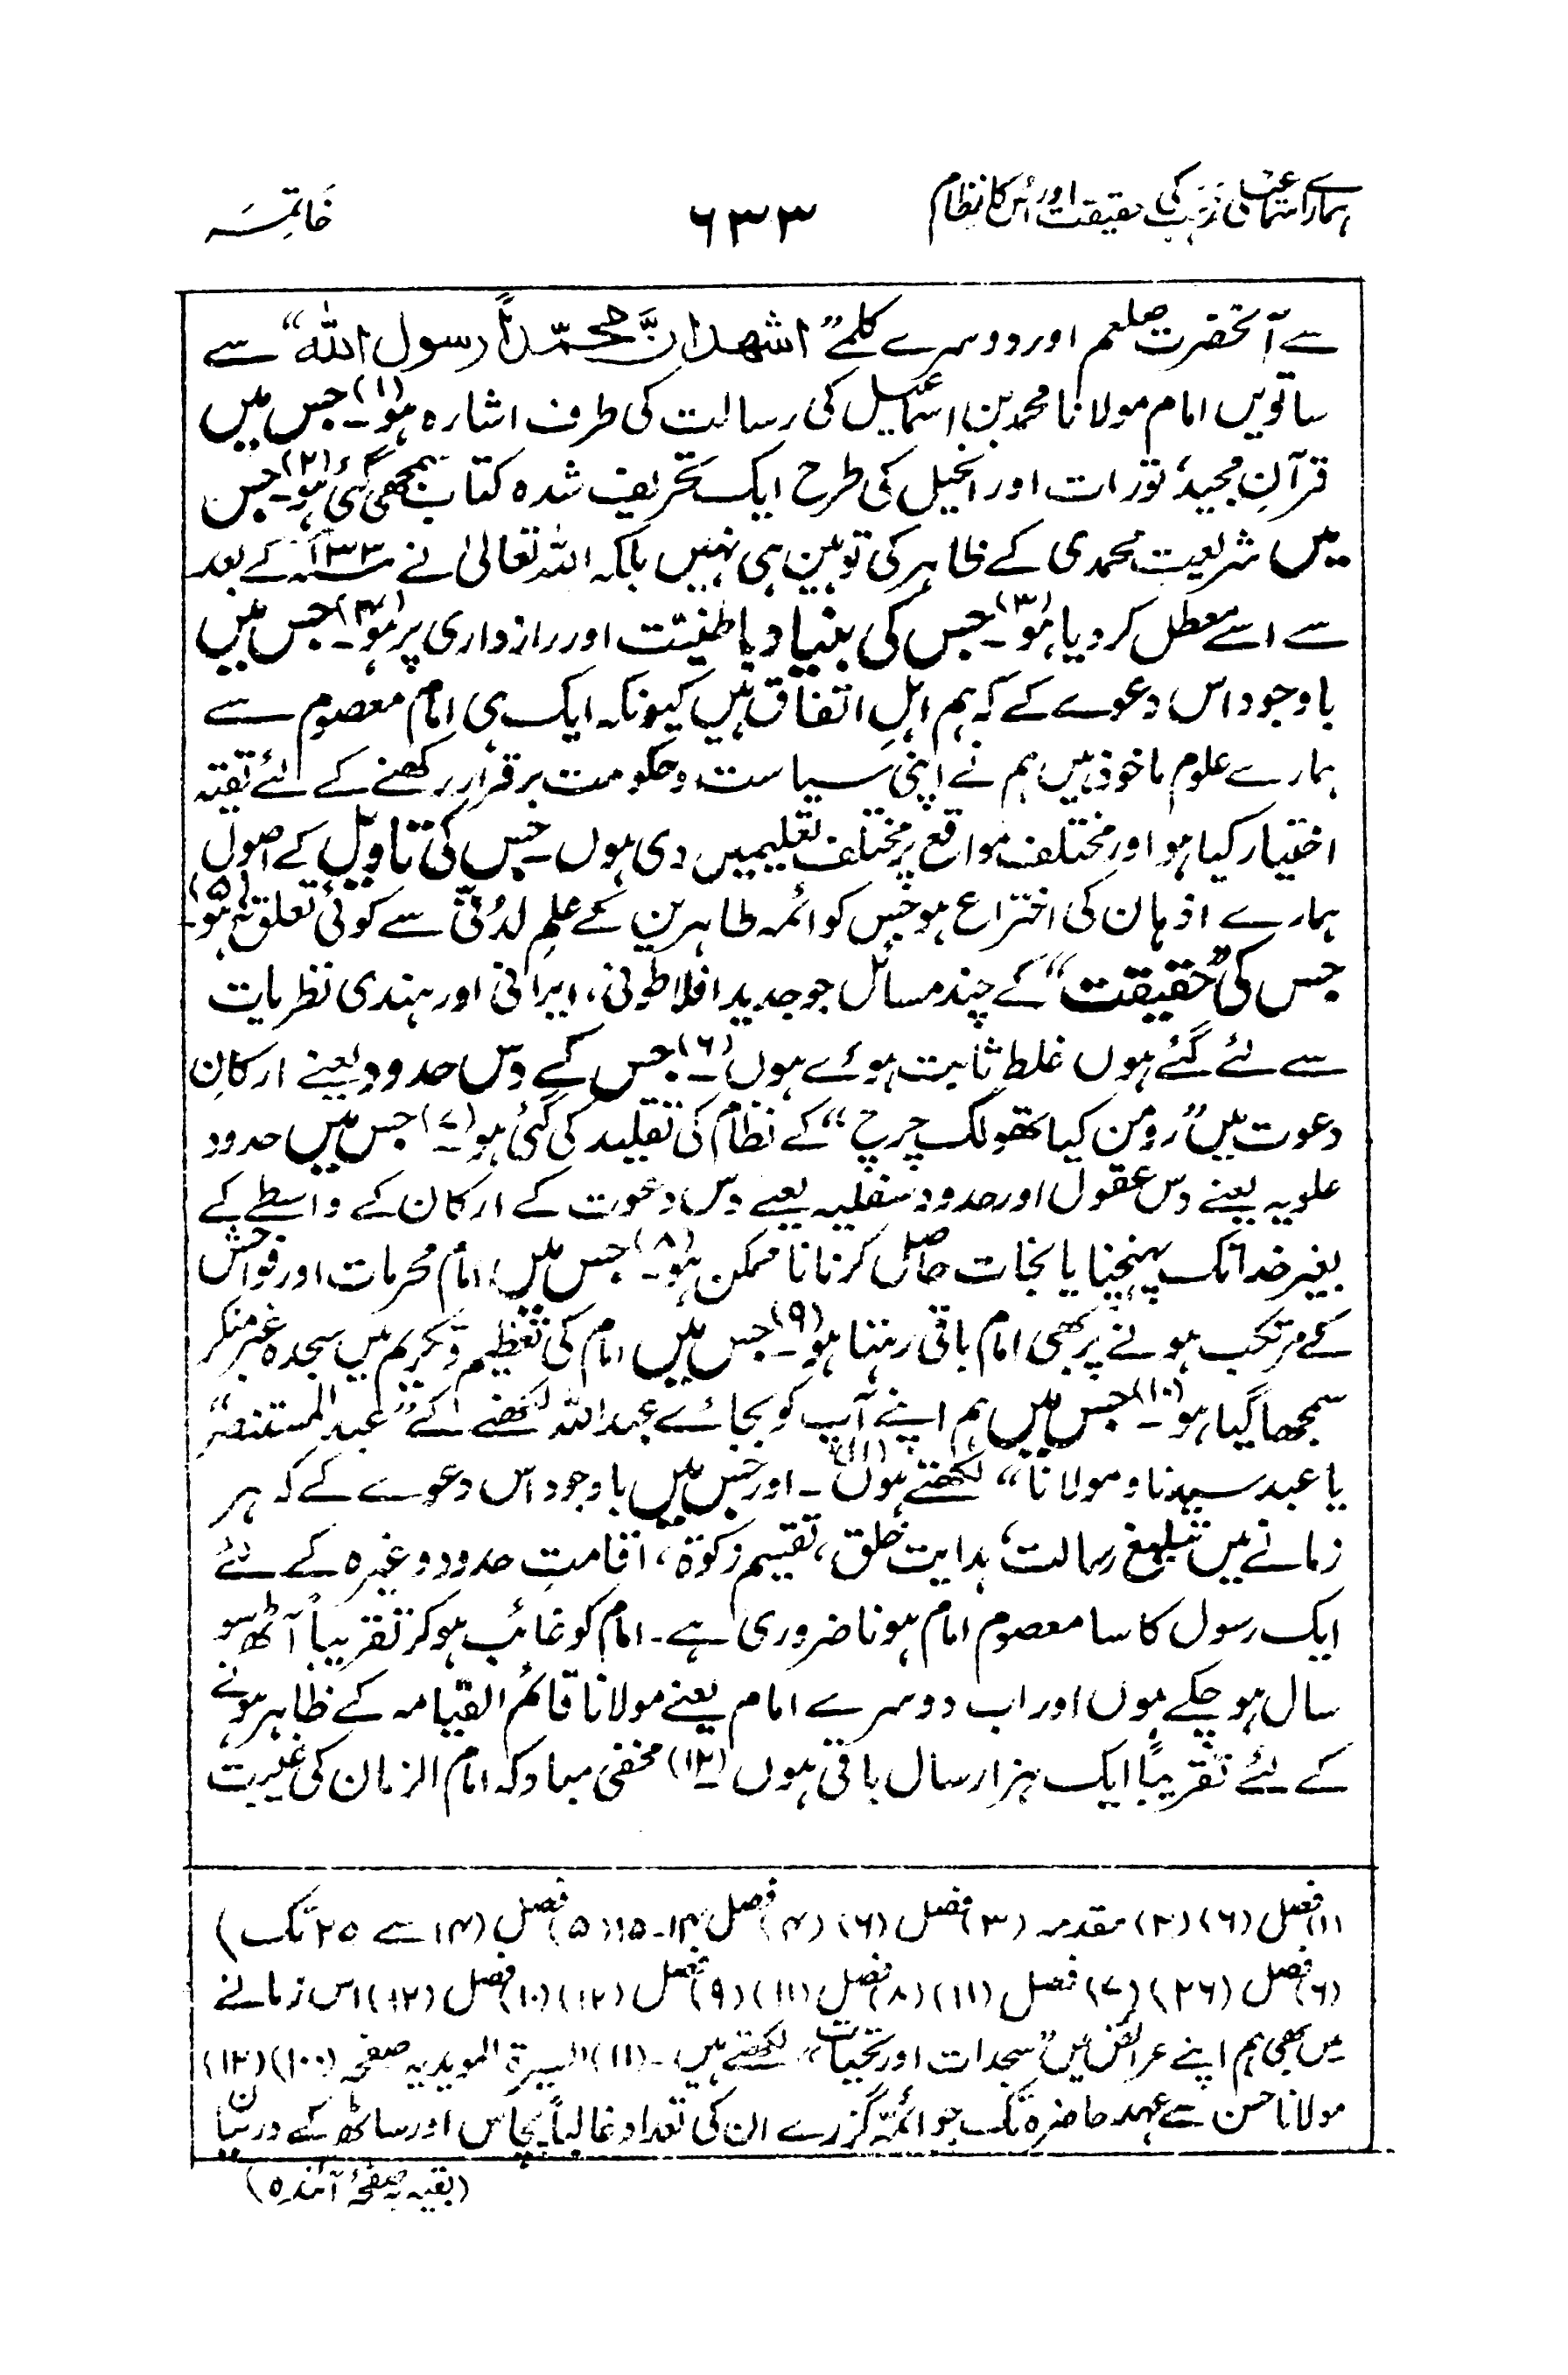 ہمارے اسماعیلی مذہب کی حقیقت اور اُس کا نظام
۶۳۳
خَاتِمَہ
سے آنحضرت صلعم اور دوسرے کلمے ”اشھد ان محمّداً رسول اللہ“ سے
ساتویں امام مولانا محمد بن اسماعیل کی رسالت کی طرف اشارہ ہو(۱)۔ جس میں
قرآنِ مجید، تورات اور انجیل کی طرح ایک تحریف شدہ کتاب سمجھی گئی ہو(۲)۔ جس
میں شریعت محمدی کے ظاہر کی توہین ہی نہیں بلکہ اللہ تعالیٰ نے کے بعد
سے اسے معطل کر دیا ہو(۳)۔ جس کی بنیاد باطنیّت اور رازداری پر ہو(۴)۔ جس میں
باوجود اس دعوے کے کہ ہم اہلِ اتفاق ہیں کیونکہ ایک ہی امام معصوم سے
ہمارے علوم ماخوذ ہیں ہم نے اپنی سیاست و حکومت برقرار رکھنے کے لئے تقیّہ
اختیار کیا ہو اور مختلف مواقع پر مختلف تعلیمیں دی ہوں۔ جس کی تاویل کے اصول
ہمارے اذہان کی اختراع ہو جس کو ائمہ طاہرین کے علمِ لدُنّی سے کوئی تعلق نہ ہو(۵)۔
جس کی ”حقیقت“ کے چند مسائل جو جدید افلاطونی، ایرانی اور ہندی نظریات
سے لئے گئے ہوں غلط ثابت ہوئے ہوں(۶)۔ جس کے دس حدود یعنے ارکانِ
دعوت میں ”رومن کیاتھولک چرچ“ کے نظام کی تقلید کی گئی ہو(۷)۔ جس میں حدود
علویہ یعنے دس عقول اور حدود سفلیہ یعنے دس دعوت کے ارکان کے واسطے کے
بغیر خدا تک پہنچنا یا نجات حاصل کرنا ناممکن ہو(۸)۔ جس میں امام محرمات اور فواحش
کے مرتکب ہونے پر بھی امام باقی رہتا ہو(۹)۔ جس میں امام کی تعظیم و تکریم میں سجدہ غیر منکر
سمجھا گیا ہو(۱۰)۔ جس میں ہم اپنے آپ کو بجائے عبداللہ لکھنے کے ”عبد المستنصر“
یا عبد سیدنا و مولانا“ لکھتے ہوں(۱۱)۔ اور جس میں باوجود اس دعوے کے کہ ہر
زمانے میں تبلیغ رسالت، ہدایت خلق، تقسیم زکوٰۃ، اقامتِ حدود وغیرہ کے لئے
ایک رسول کا سا معصوم امام ہونا ضروری ہے۔ امام کو غائب ہو کر تقریباً آٹھ سو
سال ہو چکے ہوں اور اب دوسرے امام یعنے مولانا قائم القیامہ کے ظاہر ہونے
کے لئے تقریباً ایک ہزار سال باقی ہوں(۱۲) مخفی مباد کہ امام الزمان کی غیبت
(۱) فصل (۶) (۲) مقدمہ (۳) فصل (۶) (۴) فصل ۱۴۔۱۵ (۵) فصل (۱۴ سے ۲۵ تک)
(۶) فصل (۲۶) (۷) فصل (۱۱) (۸) فصل (۱۱) (۹) فصل (۱۲) (۱۰) فصل (۱۲) اس زمانے
میں بھی ہم اپنے عرائض میں ”سجدات اور تحیات“ لکھتے ہیں۔ (۱۱) السیرۃ المویدیہ صفحہ (۱۰۰) (۱۲)
مولانا حسن سے عہد حاضرہ تک جو ائمّہ گزرے ان کی تعداد غالباً پچاس اور ساٹھ کے درمیان
(بقیہ بہ صفحۂ آئندہ)